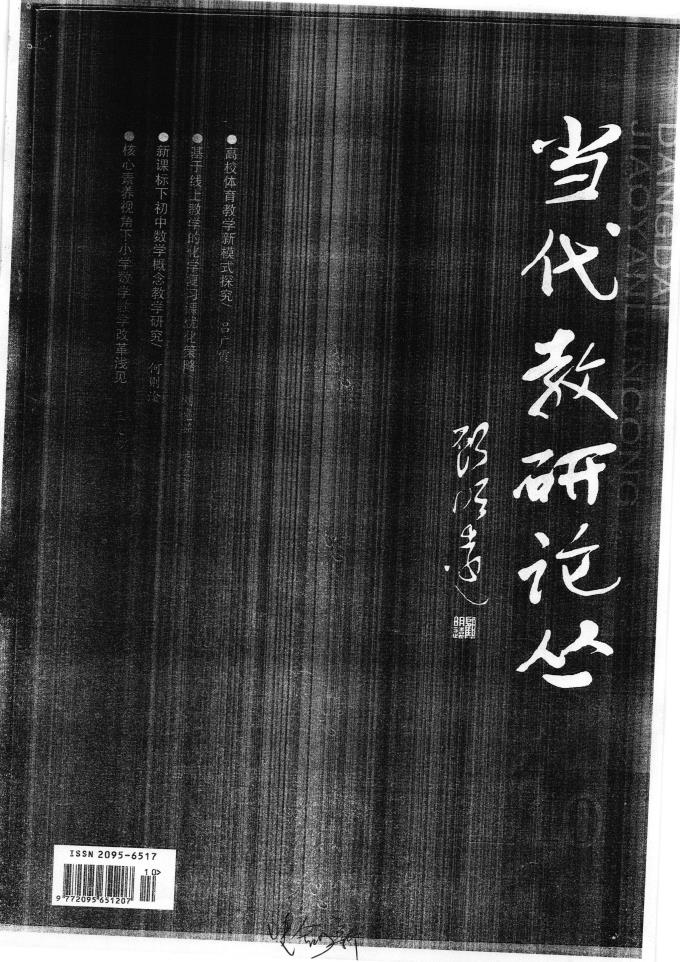 当代教研论丛
DANGDAI
JIAOYANLUNCONG
顾明远
●高校体育教学新模式探究/ 吕广霞
●基于线上教学的化学复习课优化策略
●新课标下初中数学概念教学研究/ 何则淦
●核心素养视角下小学数学教学改革浅见
ISSN 2095-6517
10>
9 772095 651207